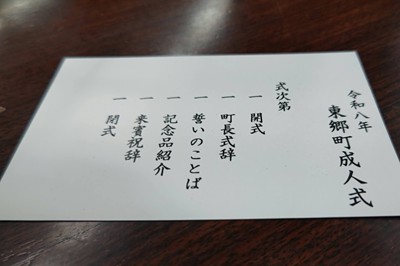 令和八年
東郷町成人式
式次第
一 開式
一 町長式辞
一 誓いのことば
一 記念品紹介
一 来賓祝辞
一 閉式